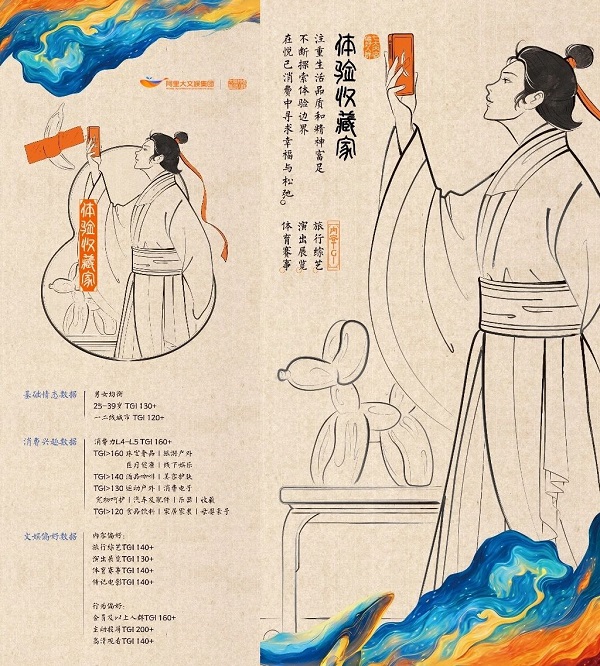 阿里大文娱集团
体验收藏家
基础情态数据
男女均衡
25-39岁 TGI 130+
一二线城市 TGI 120+
消费兴趣数据
消费力L4-L5 TGI 160+
TGI>160 珠宝奢品 | 旅游户外
医疗健康 | 线下娱乐
TGI>140 酒品咖啡 | 美容护肤
TGI>130 运动户外 | 消费电子
宠物呵护 | 汽车及配件 | 乐器 | 收藏
TGI>120 食品饮料 | 家居家装 | 母婴亲子
文娱偏好数据
内容偏好:
旅行综艺TGI 140+
演出展览TGI 130+
体育赛事TGI 140+
传记电影TGI 140+
行为偏好:
会员及以上人群TGI 160+
主动投屏TGI 200+
高清观看TGI 140+
体验收藏家
注重生活品质和精神富足
不断探索体验边界
在悦己消费中寻求幸福与松弛。
内容TGI
旅行综艺
演出展览
体育赛事